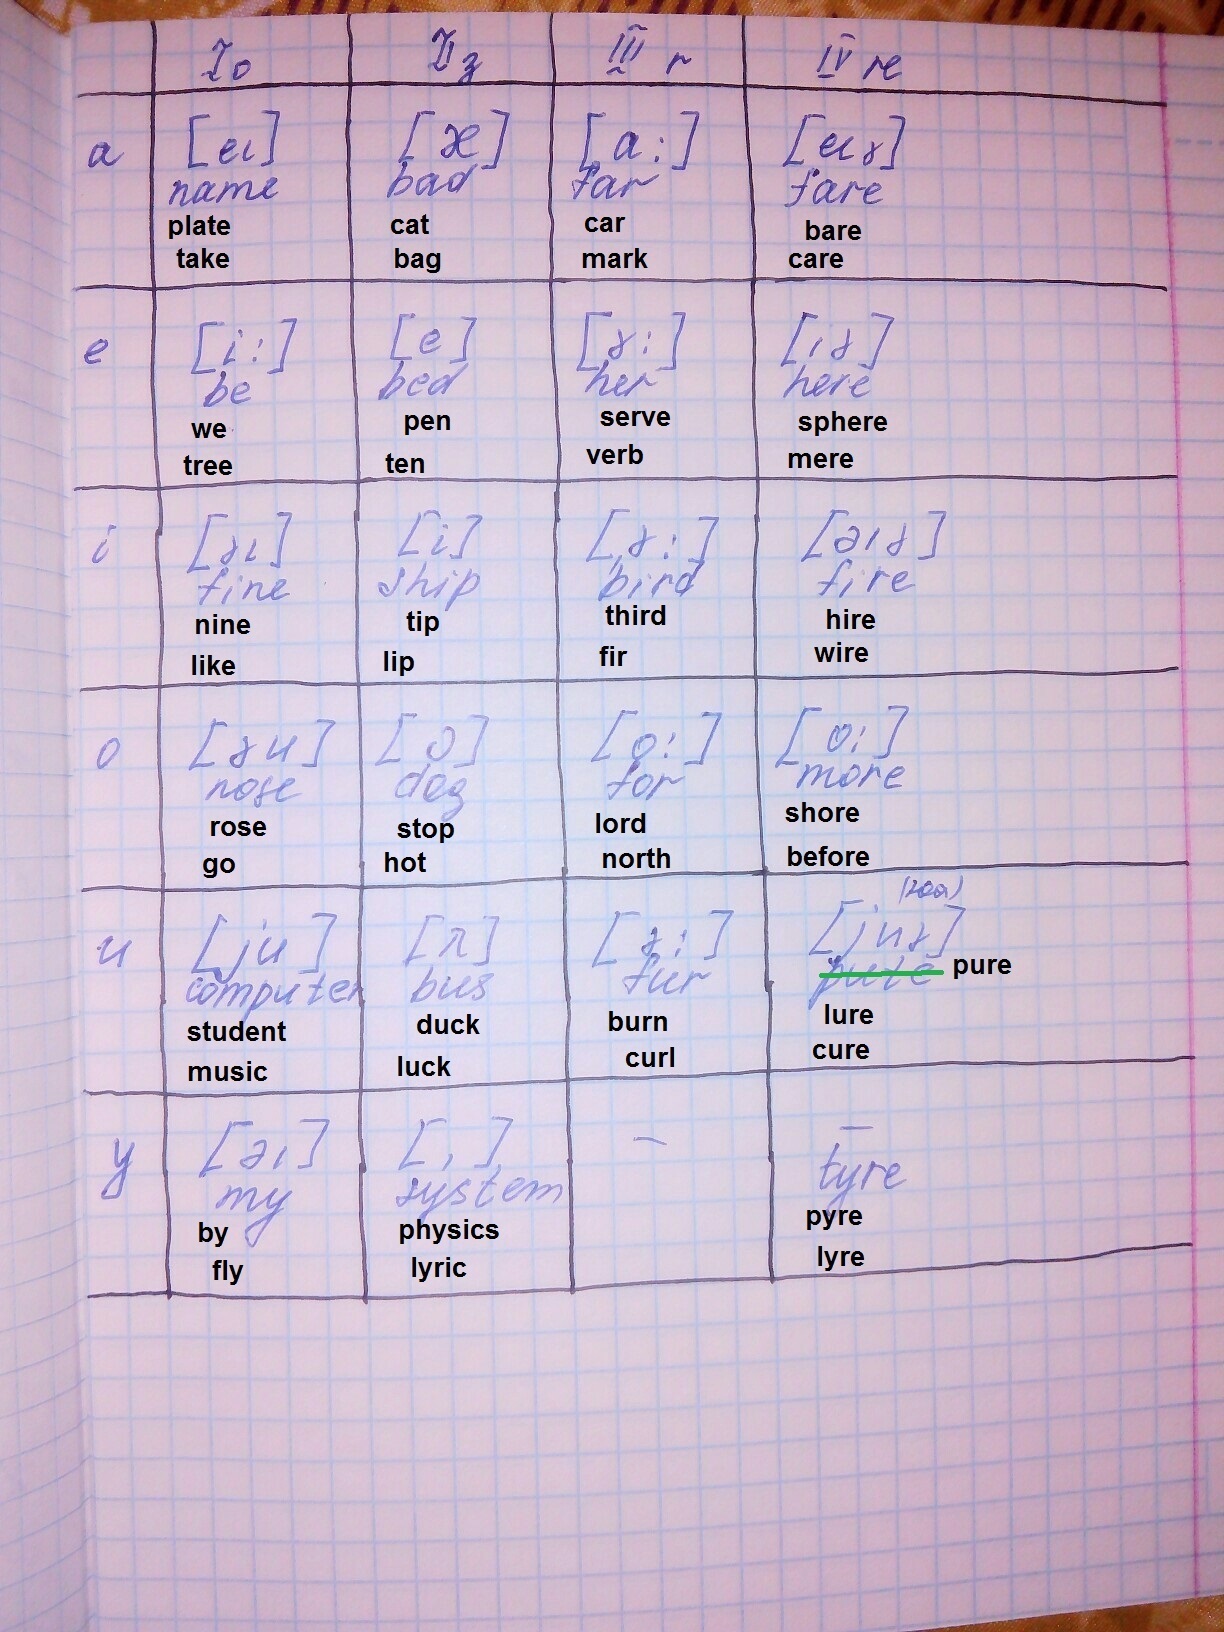 I о II з III r IV re
a [ei] [æ] [a:] [eiə]
name bad far fare
plate cat car bare
take bag mark care
e [i:] [e] [ə:] [iə]
be bed her here
we pen serve sphere
tree ten verb mere
i [ai] [i] [ə:] [aiə]
fine ship bird fire
nine tip third hire
like lip fir wire
o [əu] [ɔ] [o:] [o:]
nose dog for more
rose stop lord shore
go hot north before
u [ju] [ʌ] [ə:] [juə]
computer bus fur pure pure
student duck burn lure
music luck curl cure
y [ai] [i] – –
my system tyre
by physics pyre
fly lyric lyre